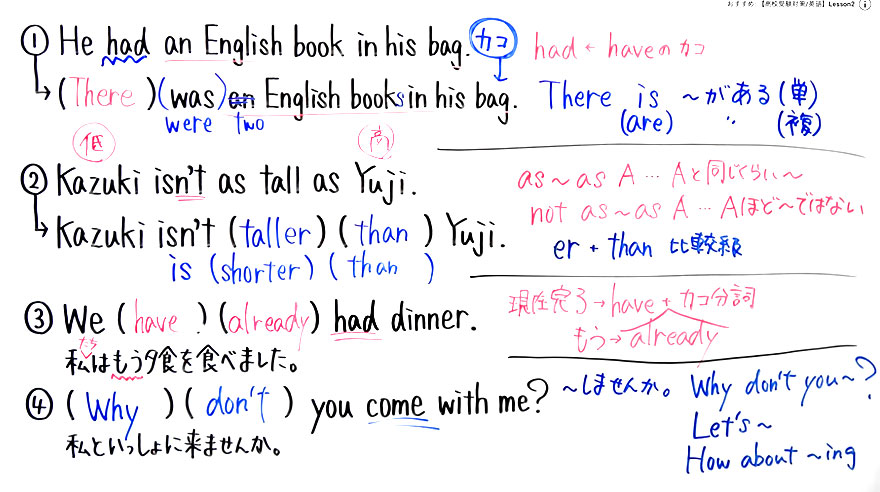 おすすめ 【高校受験対策/英語】Lesson2 i
① He had an English book in his bag. カコ had ← haveのカコ
↳ (There) (was) an English books in his bag.
were two
There is ～がある(単)
(are) 〃 (複)
低 高
② Kazuki isn't as tall as Yuji.
↳ Kazuki isn't (taller) (than) Yuji.
is (shorter) (than)
as～as A … Aと同じくらい～
not as～as A … Aほど～ではない
er + than 比較級
③ We (have) (already) had dinner.
私たちはもう夕食を食べました。
現在完了→have + カコ分詞
もう→already
④ (Why) (don't) you come with me?
私といっしょに来ませんか。
～しませんか。 Why don't you～?
Let's～
How about ～ing